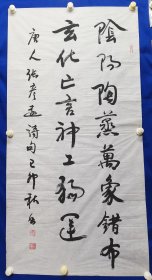 陰陽陶蒸萬象錯布
玄化亡言神工獨運
唐人張彥遠詩句己卯秋